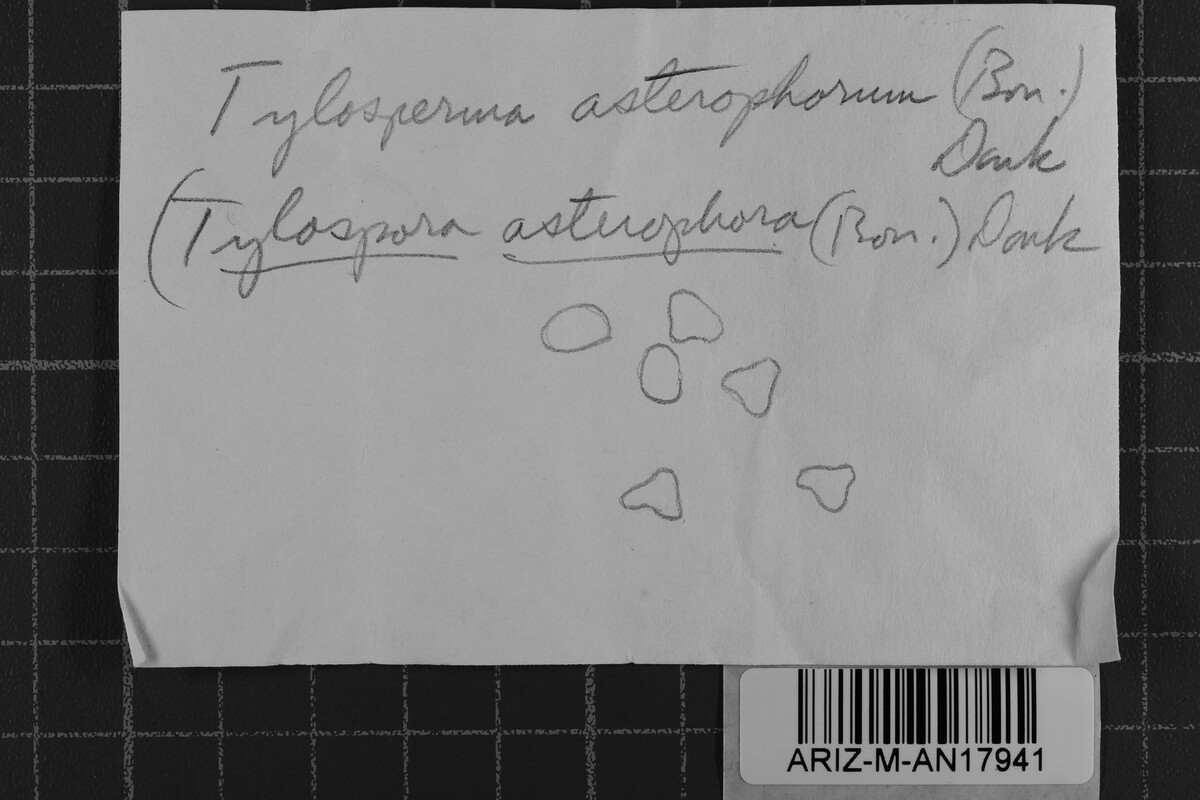 Tylosperma asterophorum (Bon.)
Donk
(Tylospora asterophora (Bon.) Donk
ARIZ-M-AN17941